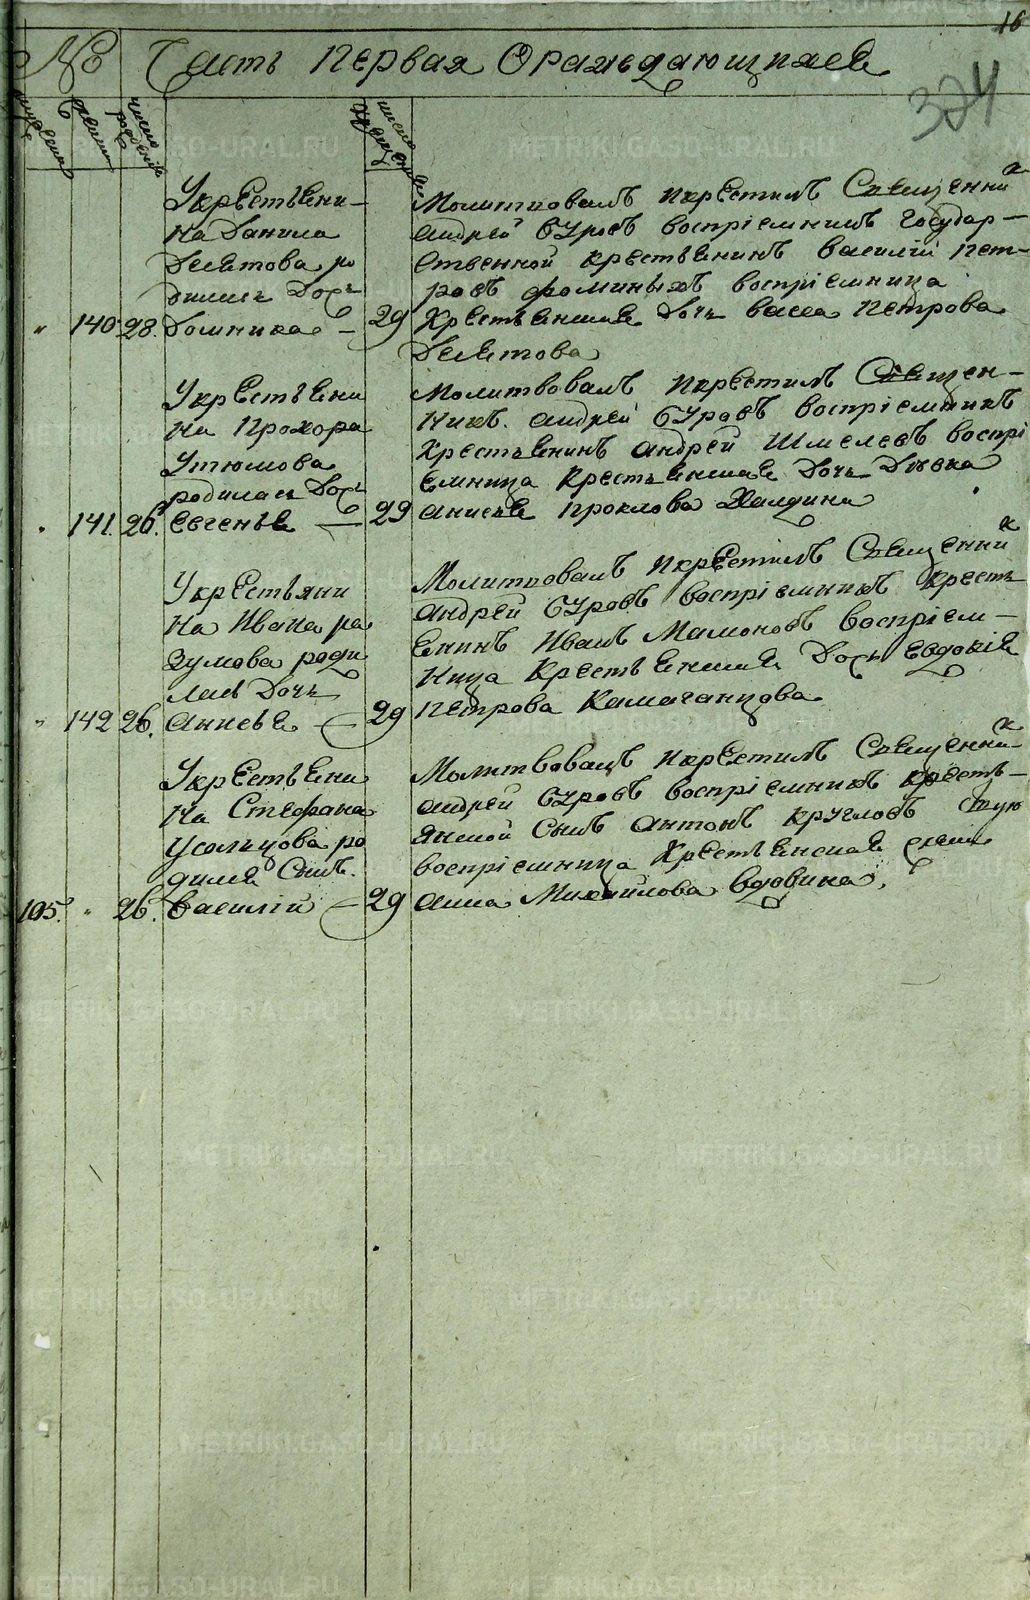 16
№ Часть Первая О раждающихся
324
мужеска
женска
число рождения
число крещения
У крестьяни-
на Данила
Десятова ро
дилась Дочь
" 140 28. Домника — 29
Молитвовалъ и крестилъ Священник
Андрей Буровъ воспріемникъ Государ-
ственной крестьянинъ Василій Пет-
ровъ Фоминыхъ воспріемница
Крестьянская Дочь Васса Петрова
Десятова
У крестьяни
на Прохора
Утюмова
родилась Дочь
" 141. 26. Евгенья — 29
Молитвовалъ и крестилъ Священ-
никъ Андрей Буровъ воспріемникъ
Крестьянинъ Андрей Шмелевъ воспрі
емница Крестьянская Дочь Дѣвка
Анисья Проклова Халдина
У крестьяни
на Ивана ра
зумова роди
лась Дочь
" 142 26. Анисья — 29
Молитвовалъ и крестилъ Священник
Андрей Буровъ воспріемникъ Кресть
янинъ Иванъ Мамоновъ воспріем-
ница Крестьянская Дочь Евдокія
Петрова Камаганцова
У крестьяни
на Стефана
Усольцова ро
дился Сынъ.
105. " 26. Василій — 29
Молитвовалъ и крестилъ Священник
Андрей Буровъ воспріемникъ кресть-
янской Сынъ Антонъ Кругловъ
воспріемница Крестьянская
Анна Михайлова Вдовина,